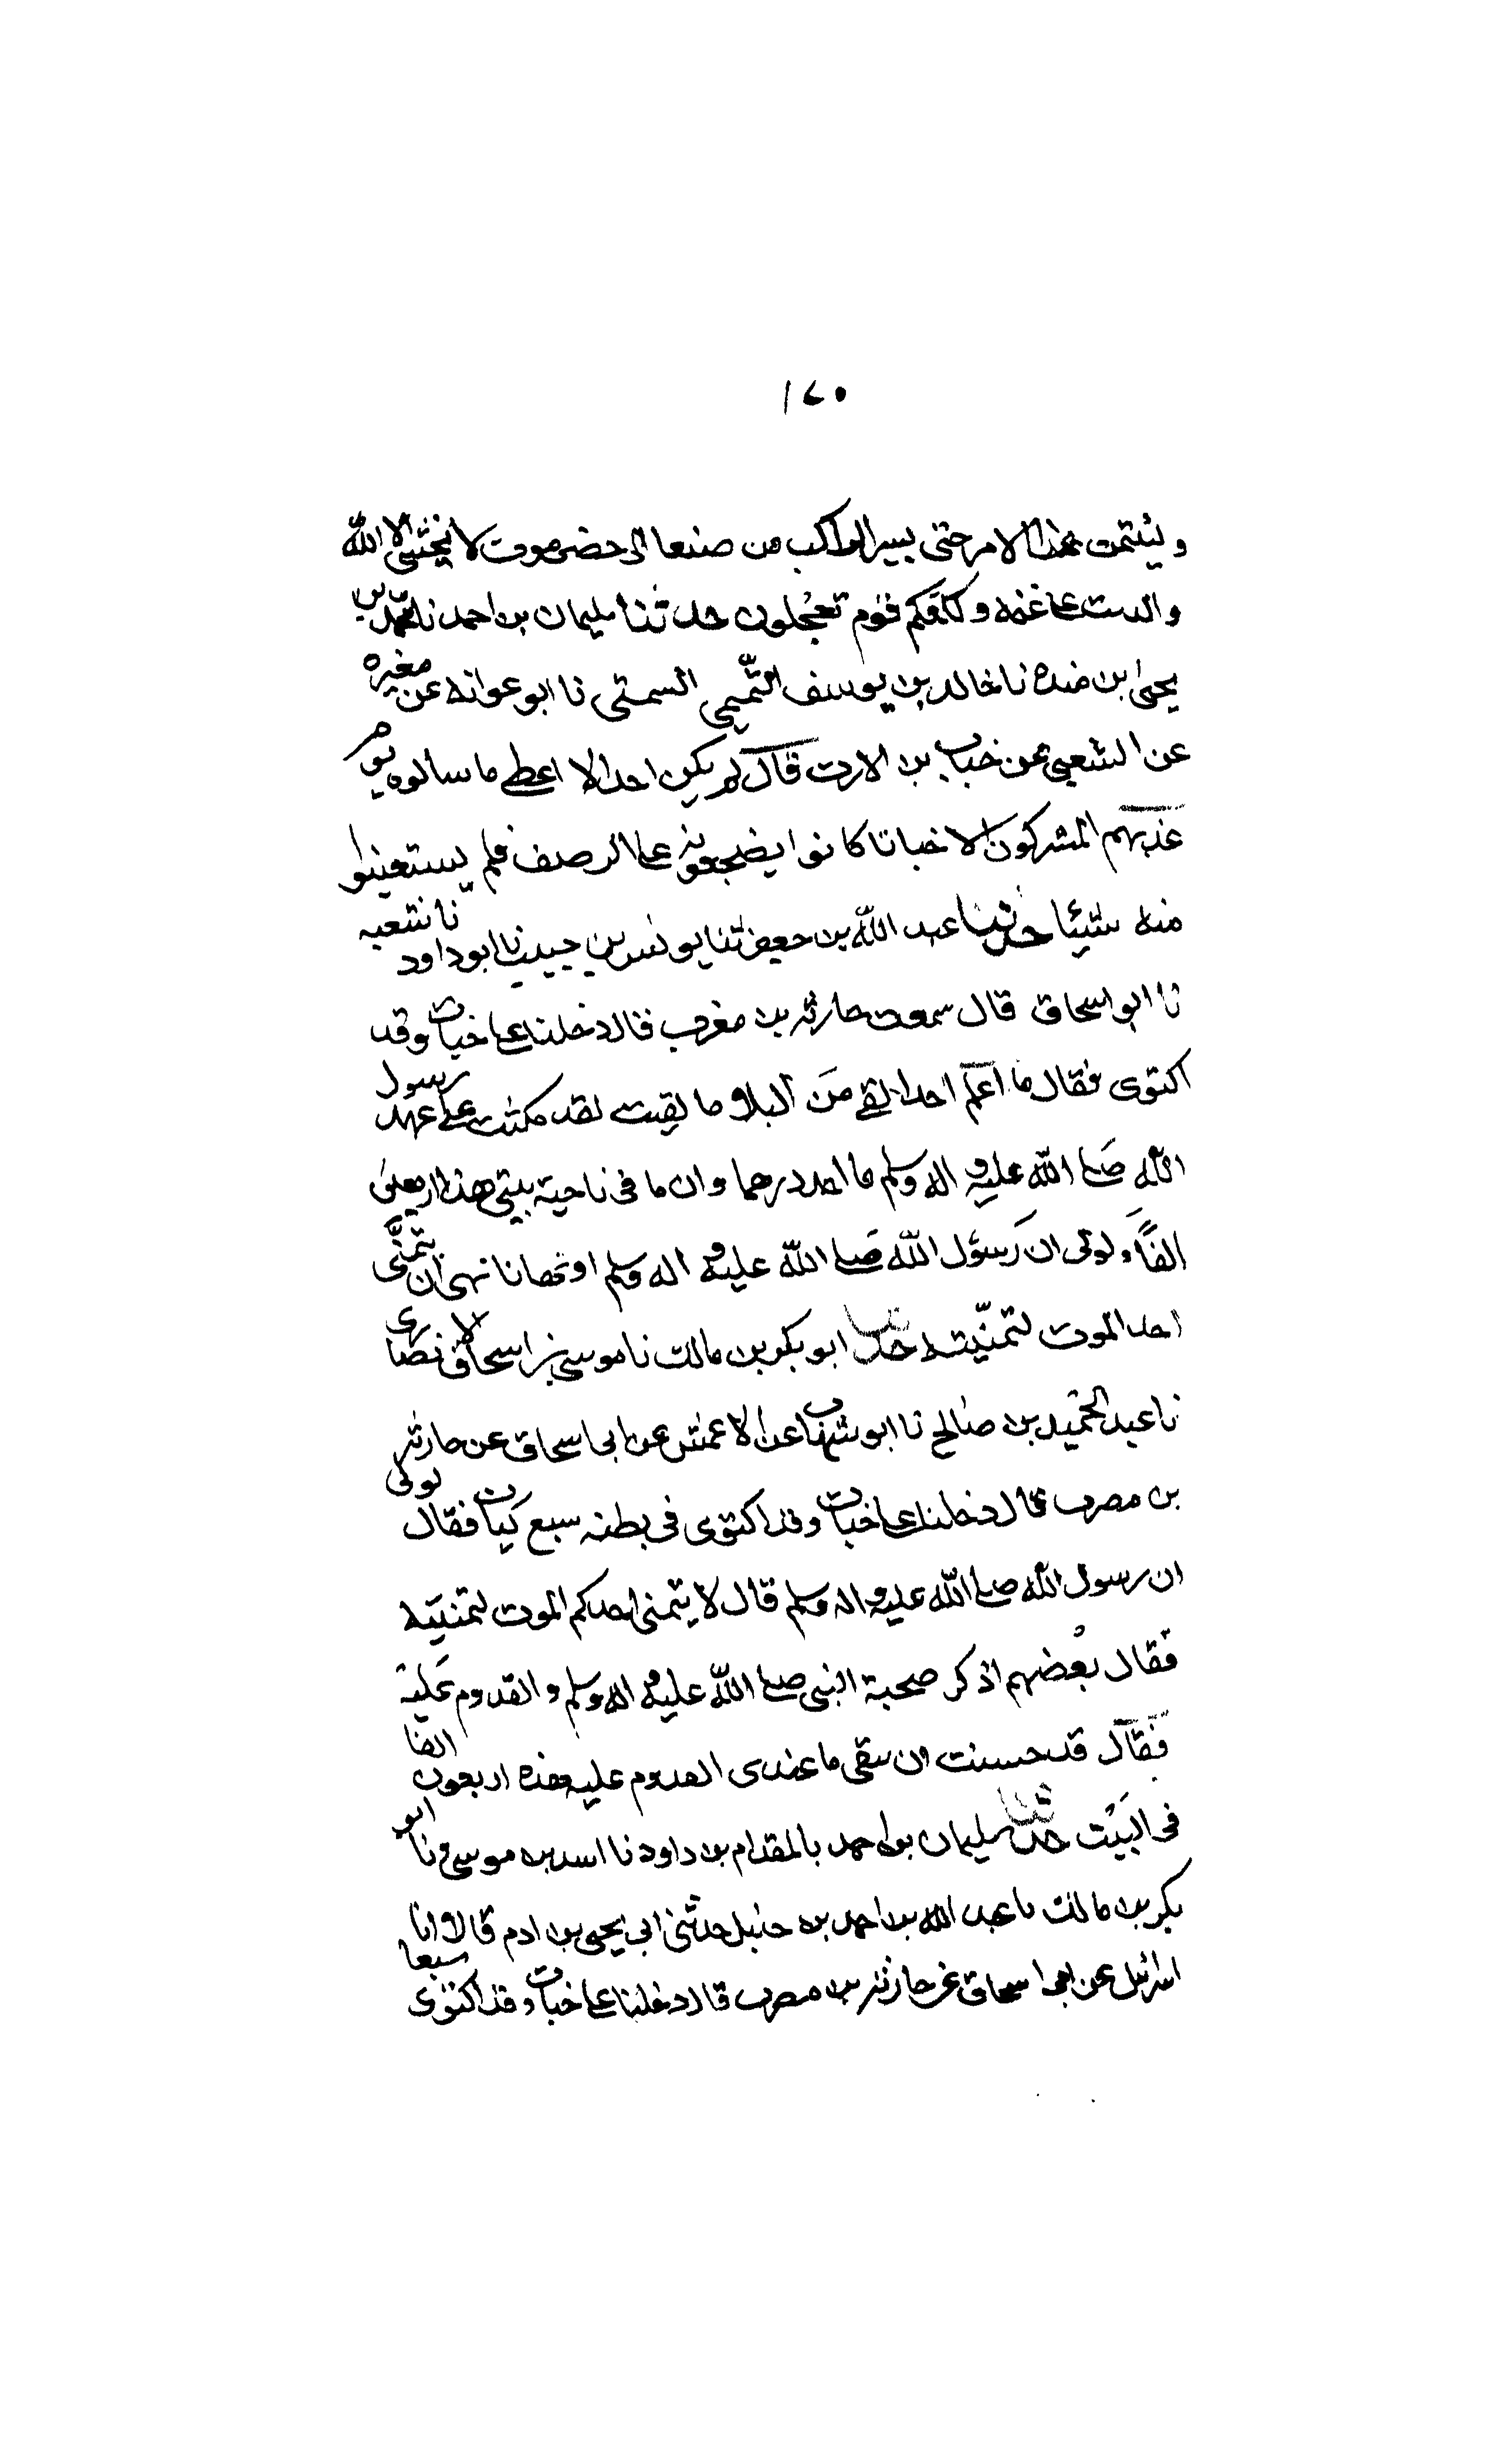 ١٧٠
وليتمن هذا الامر حتى يسير الراكب من صنعا الى حضرموت لا يخشى الا الله
والذئب على غنمه ولكنكم قوم تعجلون حدثنا سليمان بن احمد نا محمد بن
يحيى بن منده نا خالد بن يوسف التميمي السمتي نا ابو عوانه عن مغيره
عن الشعبي عن خباب بن الارت قال لم يكن احد الا اعطى ما سالوه يوم
عذبهم المشركون الا خبابا كانوا يضجعونه على الرصف فلم يستعينوا
منه شيئا حدثنا عبد الله بن جعفر ثنا يونس بن حبيب نا ابو داود نا شعبه
نا ابو اسحاق قال سمعت حارثه بن مضرب قال دخلنا على خباب وقد
اكتوى فقال ما اعلم احدا لقي من البلاء ما لقيت لقد مكثت على عهد رسول
الله صلى الله عليه واله وسلم ما اجد درهما وان ما فى ناحية بيتي هذا اربعين
الفا ولولى ان رسول الله صلى الله عليه واله وسلم او نهانا نهى ان يتمنى
احد الموت لتمنيته حدثنا ابو بكر بن مالك نا موسى بن اسحاق الانصارى
نا عبد الحميد بن صالح نا ابو شهاب عن الاعمش عن ابى اسحاق عن حارثه
بن مضرب قال دخلنا على خباب وقد اكتوى فى بطنه سبع كيات فقال لولى
ان رسول الله صلى الله عليه واله وسلم قال لا يتمنى احدكم الموت لتمنيته
فقال بعضهم اذكر صحبة النبي صلى الله عليه واله وسلم والقدوم عليه
فقال قد حسنت ان يبقى ما عندى القدوم عليه هذه اربعون الفا
فى البيت حدثنا سليمان بن احمد بالمقدام بن داود نا اسد بن موسى ونا ابو
بكر بن مالك نا عبد الله بن احمد بن حنبل حدثني ابي يحيى بن ادم قالا نا
اسرائيل عن ابى اسحاق عن حارثه بن مضرب قال دخلنا على خباب وقد اكتوى سبعا